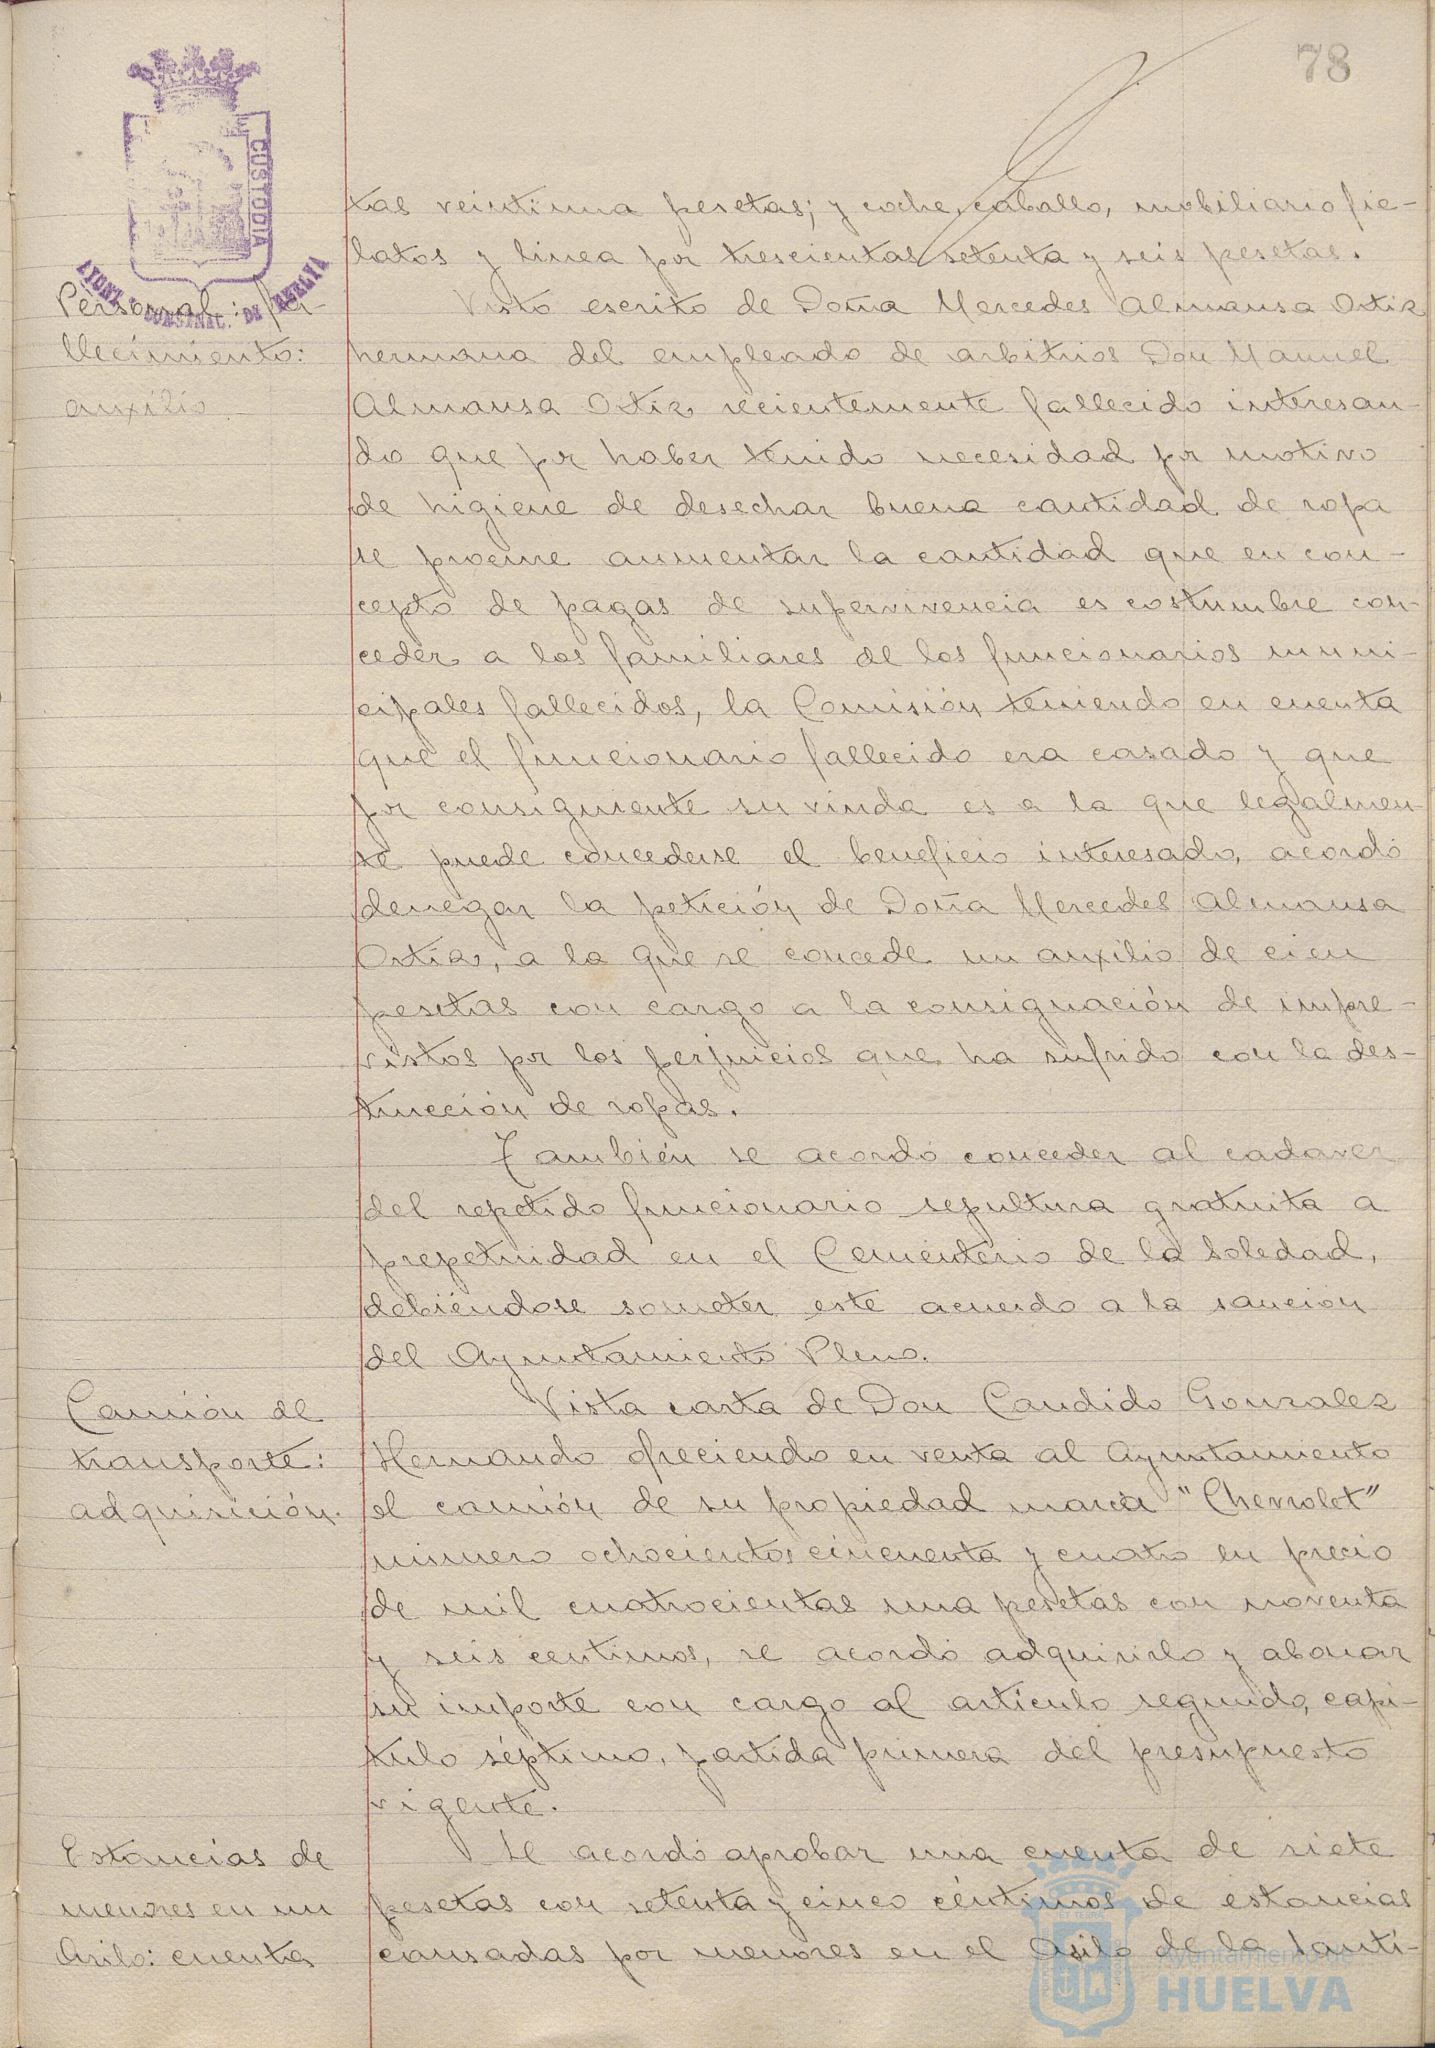 78
CUSTODIA
AYUNT. CONSTNAL. DE HUELVA
tas veintiuna pesetas; y coche, caballo, mobiliario fie-
latos y linea por trescientas setenta y seis pesetas.
Personal: fa-
llecimiento:
auxilio.
Visto escrito de Doña Mercedes Almansa Ortiz
hermana del empleado de arbitrios Don Manuel
Almansa Ortiz recientemente fallecido interesan-
do que por haber tenido necesidad por motivo
de higiene de desechar buena cantidad de ropa
se procure aumentar la cantidad que en con-
cepto de pagas de supervivencia es costumbre con-
ceder a los familiares de los funcionarios muni-
cipales fallecidos, la Comisión teniendo en cuenta
que el funcionario fallecido era casado y que
por consiguiente su viuda es a la que legalmen-
te puede concederse el beneficio interesado, acordó
denegar la petición de Doña Mercedes Almansa
Ortiz, a la que se concede un auxilio de cien
pesetas con cargo a la consignación de impre-
vistos por los perjuicios que ha sufrido con la des-
trucción de ropas.
También se acordó conceder al cadaver
del repetido funcionario sepultura gratuita a
prepetuidad en el Cementerio de la Soledad,
debiéndose someter este acuerdo a la sancion
del Ayuntamiento Pleno.
Camión de
transporte:
adquisición.
Vista carta de Don Candido Gonzalez
Hernando ofreciendo en venta al Ayuntamiento
el camión de su propiedad marca "Chevrolet"
número ochocientos cincuenta y cuatro en precio
de mil cuatrocientas una pesetas con noventa
y seis centimos, se acordó adquirirlo y abonar
su importe con cargo al artículo segundo, capi-
tulo séptimo, partida primera del presupuesto
vigente.
Estancias de
menores en un
Asilo: cuenta
Se acordó aprobar una cuenta de siete
pesetas con setenta y cinco céntimos de estancias
causadas por menores en el Asilo de la Santi-
Ayuntamiento de
HUELVA